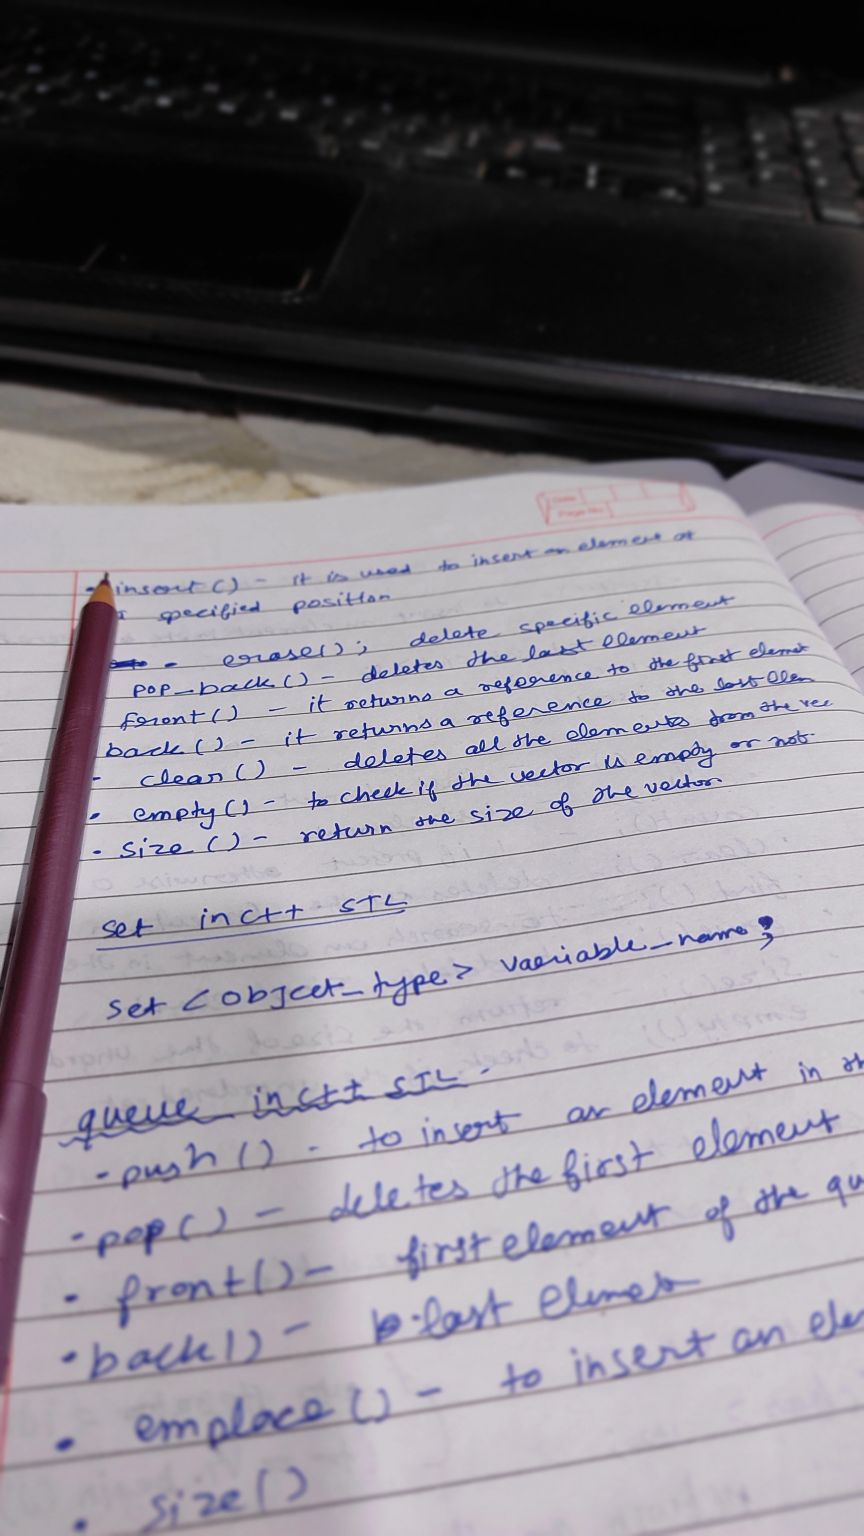 - insert() - it is used to insert an element at
a specified position
- erase(); delete specific element
pop_back() - deletes the last element
front() - it returns a reference to the first element
back() - it returns a reference to the last elem
- clear() - deletes all the elements from the vec
- empty() - to check if the vector is empty or not
- size() - return the size of the vector.
set in c++ STL
set <object_type> variable_name;
queue in c++ STL.
- push() - to insert an element in th
- pop() - deletes the first element
- front() - first element of the qu
- back() - last element
- emplace() - to insert an ele
- size()